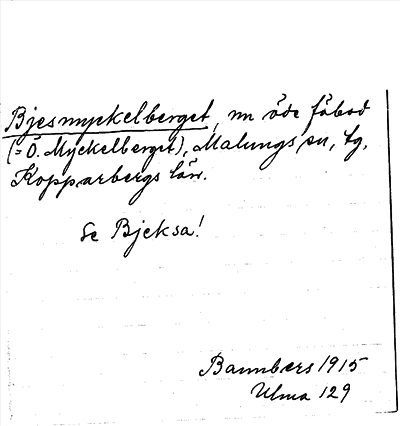 Bjesmyckelberget, nu öde fäbod
(= Ö. Myckelberget), Malungs sn, tg,
Kopparbergs län.
Se Bjeksa!
Bannbers 1915
Ulma 129